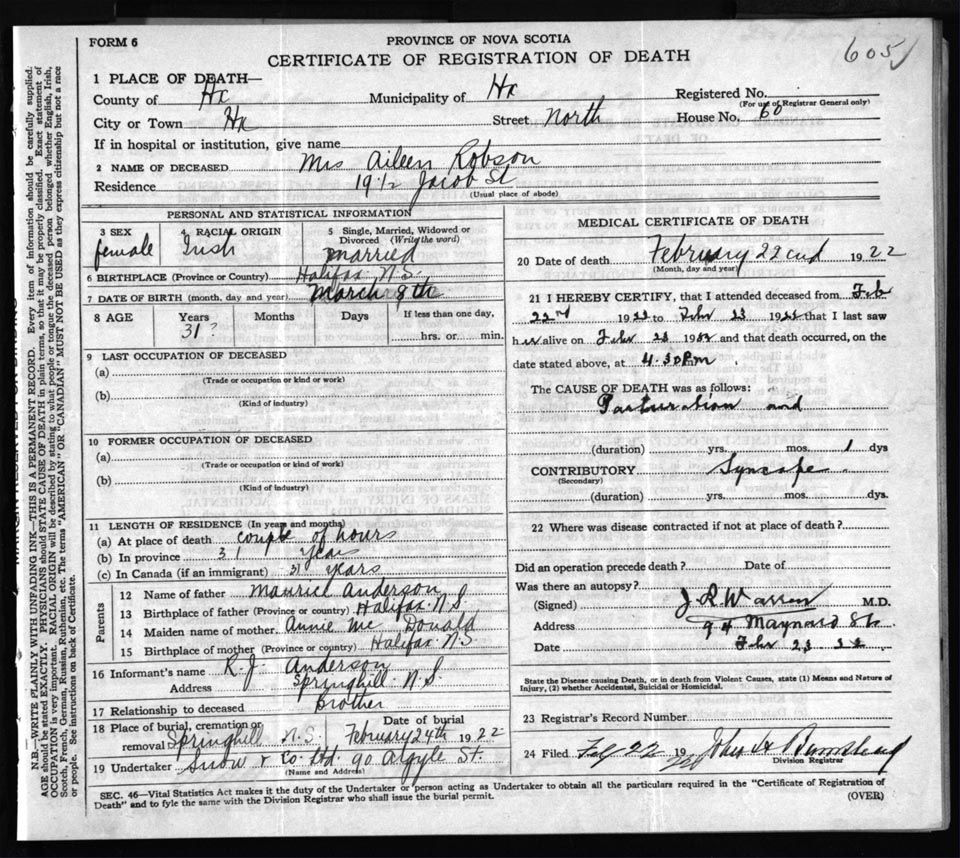 605
FORM 6
PROVINCE OF NOVA SCOTIA
CERTIFICATE OF REGISTRATION OF DEATH
1 PLACE OF DEATH—
County of Hx Municipality of Hx Registered No.
(For use of Registrar General only)
City or Town Hx Street North House No. 60
If in hospital or institution, give name
2 NAME OF DECEASED Mrs Aileen Robson
Residence 19 1/2 Jacob St
(Usual place of abode)
PERSONAL AND STATISTICAL INFORMATION
3 SEX 4 RACIAL ORIGIN 5 Single, Married, Widowed or Divorced (Write the word)
female Irish married
6 BIRTHPLACE (Province or Country) Halifax N.S.
7 DATE OF BIRTH (month, day and year) March 8th
8 AGE Years Months Days If less than one day,
31? hrs. or min.
9 LAST OCCUPATION OF DECEASED
(a)
(Trade or occupation or kind or work)
(b)
(Kind of industry)
10 FORMER OCCUPATION OF DECEASED
(a)
(Trade or occupation or kind of work)
(b)
(Kind of industry)
11 LENGTH OF RESIDENCE (In years and months)
(a) At place of death couple of hours
(b) In province 31 years
(c) In Canada (if an immigrant) 31 years
Parents
12 Name of father Maurice Anderson
13 Birthplace of father (Province or country) Halifax. N.S.
14 Maiden name of mother Annie Mc Donald
15 Birthplace of mother (Province or country) Halifax N.S
16 Informant's name R. J. Anderson
Address Springhill N.S.
17 Relationship to deceased Brother
18 Place of burial, cremation or removal Springhill N.S. Date of burial February 24th 1922
19 Undertaker Snow & Co. Ltd. 90 Argyle St.
(Name and Address)
MEDICAL CERTIFICATE OF DEATH
20 Date of death February 22cnd 1922
(Month, day and year)
21 I HEREBY CERTIFY, that I attended deceased from Feb
22nd 1922 to Febr 23 1922 that I last saw
her alive on Febr 23 1922 and that death occurred, on the
date stated above, at 4.30 Pm
The CAUSE OF DEATH was as follows:
Parturation and
(duration) yrs. mos. 1 dys
CONTRIBUTORY Syncope
(Secondary)
(duration) yrs. mos. dys.
22 Where was disease contracted if not at place of death?
Did an operation precede death? Date of
Was there an autopsy?
(Signed) J. R. Warren M.D.
Address 94 Maynard St.
Date Febr 23 22
State the Disease causing Death, or in death from Violent Causes, state (1) Means and Nature of
Injury, (2) whether Accidental, Suicidal or Homicidal.
23 Registrar's Record Number
24 Filed Feb 22 19
Division Registrar
SEC. 46—Vital Statistics Act makes it the duty of the Undertaker or person acting as Undertaker to obtain all the particulars required in the "Certificate of Registration of
Death" and to fyle the same with the Division Registrar who shall issue the burial permit. (OVER)
N.B.—WRITE PLAINLY WITH UNFADING INK—THIS IS A PERMANENT RECORD. Every item of information should be carefully supplied:
AGE should be stated EXACTLY. PHYSICIANS should STATE CAUSE OF DEATH in plain terms, so that it may be properly classified. Exact statement of
OCCUPATION is very important. RACIAL ORIGIN will be described by stating to what people or tongue the deceased person belonged whether English, Irish,
Scotch, French, German, Russian, Ruthenian, etc. The terms "AMERICAN" or "CANADIAN" MUST NOT BE USED as they express citizenship but not a race
or people. See instructions on back of Certificate.